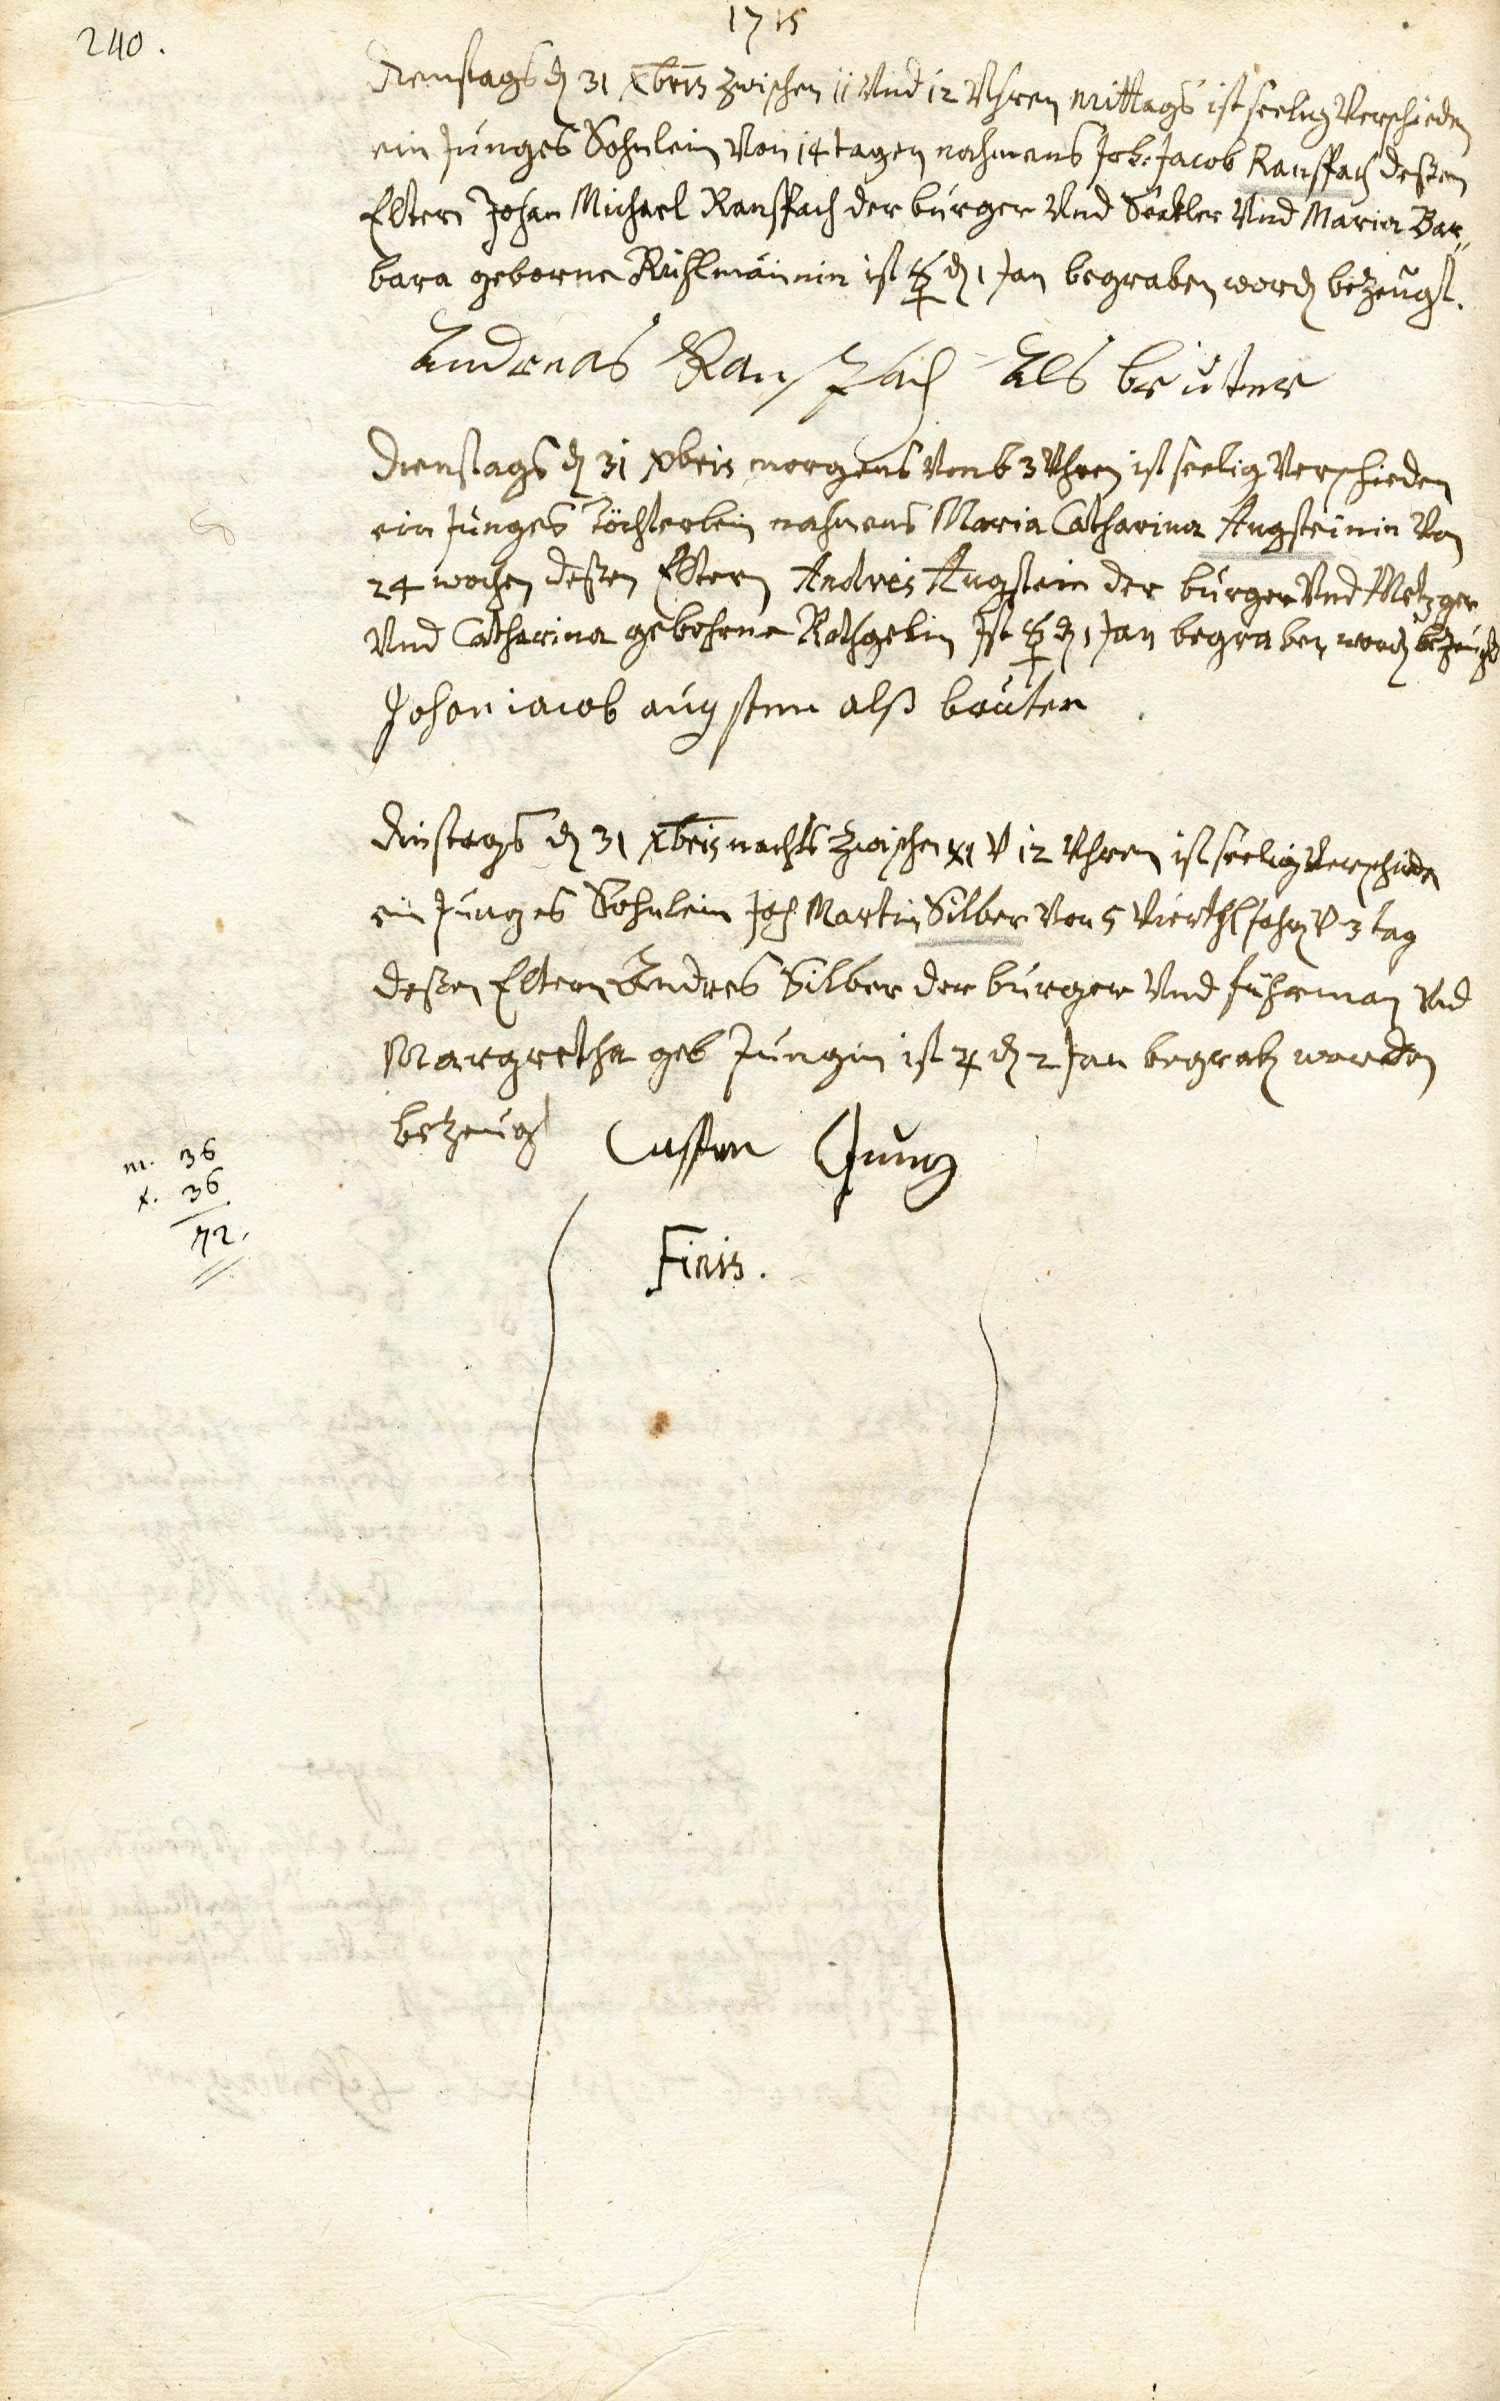 240.
1715
Dienstags dn 31 Xbris zwischen 11 Vnd 12 Vhren mittags ist seelig Verschieden
ein Junges Söhnlein Von 14 tagen nahmens Joh. Jacob Ranspach deßen
Eltern Johan Michael Ranspach der burger Vnd Seckler Vnd Maria Bar„
bara geborne Rühlmännin ist ☿ dn 1 Jan begraben word bezeugt.
Andreas Ranspach als bruter
Dienstags dn 31 Xbris morgens Vmb 3 Vhren ist seelig Verschieden
ein Junges Töchterlein nahmens Maria Catharina Augsteinin Von
24 wochen deßen Eltern Andreis Augstein der burger Vnd Metzger
Vnd Catharina gebohrne Rothgebin Ist ☿ dn 1 Jan begraben word bezeugt
Johan iacob augstein alß bruter
Dinstags dn 31 Xbris nachts zwischen XI V 12 Vhren ist seelig Verschieden
ein Junges Söhnlein Joh Martin Silber Von 5 Vierthl Jahr V 3 tag
deßen Eltern Andres Silber der burger Vnd fuhrman Vnd
Margretha geb Jungin ist ♃ dn 2 Jan begrab worden
bezeugt Casper Jung
m. 36
f. 36
72.
Finis.